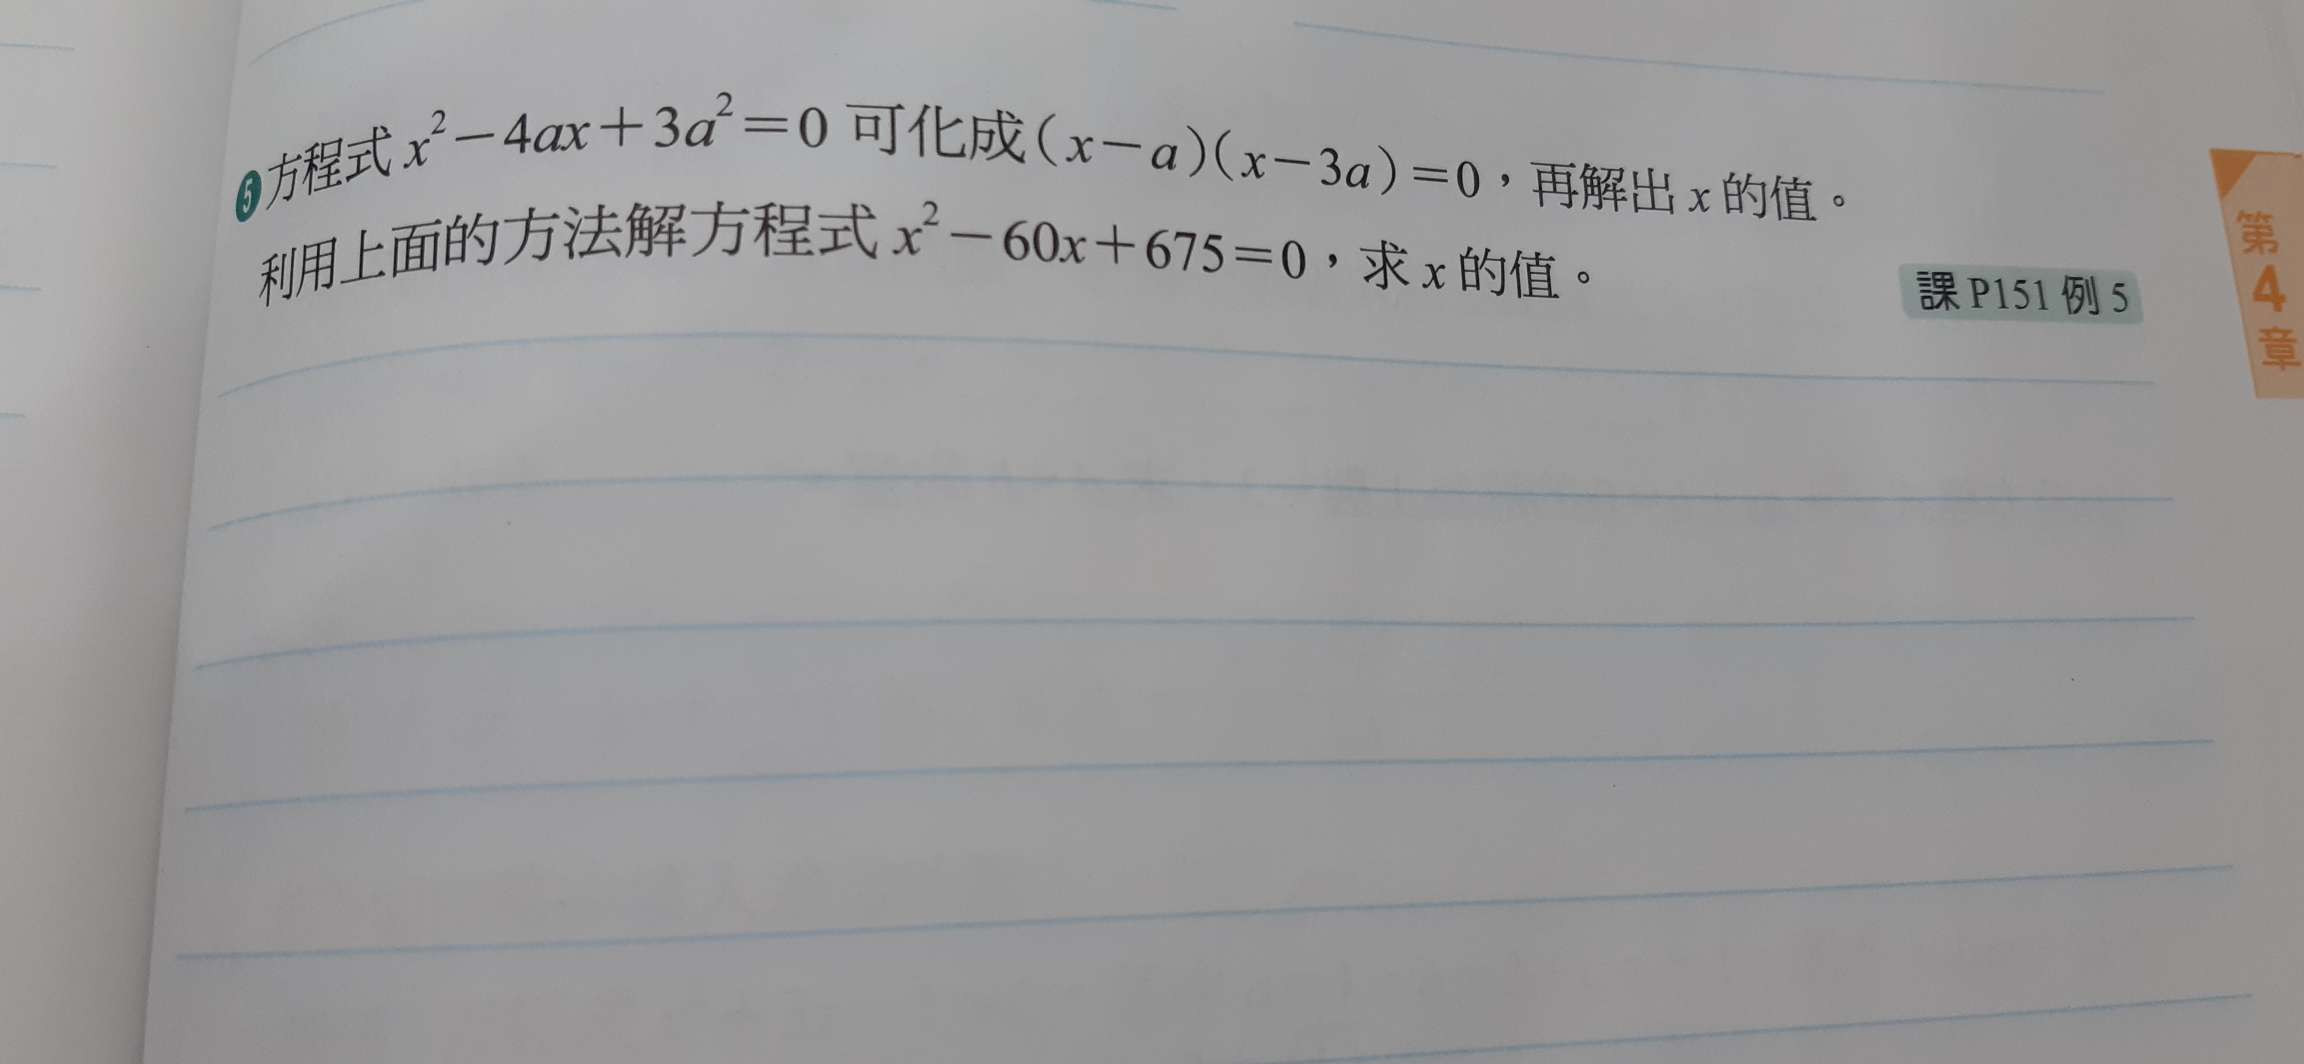 ❺方程式 x²－4ax＋3a²＝0 可化成(x－a)(x－3a)＝0，再解出 x 的值。
利用上面的方法解方程式 x²－60x＋675＝0，求 x 的值。
課 P151 例 5
第
4
章